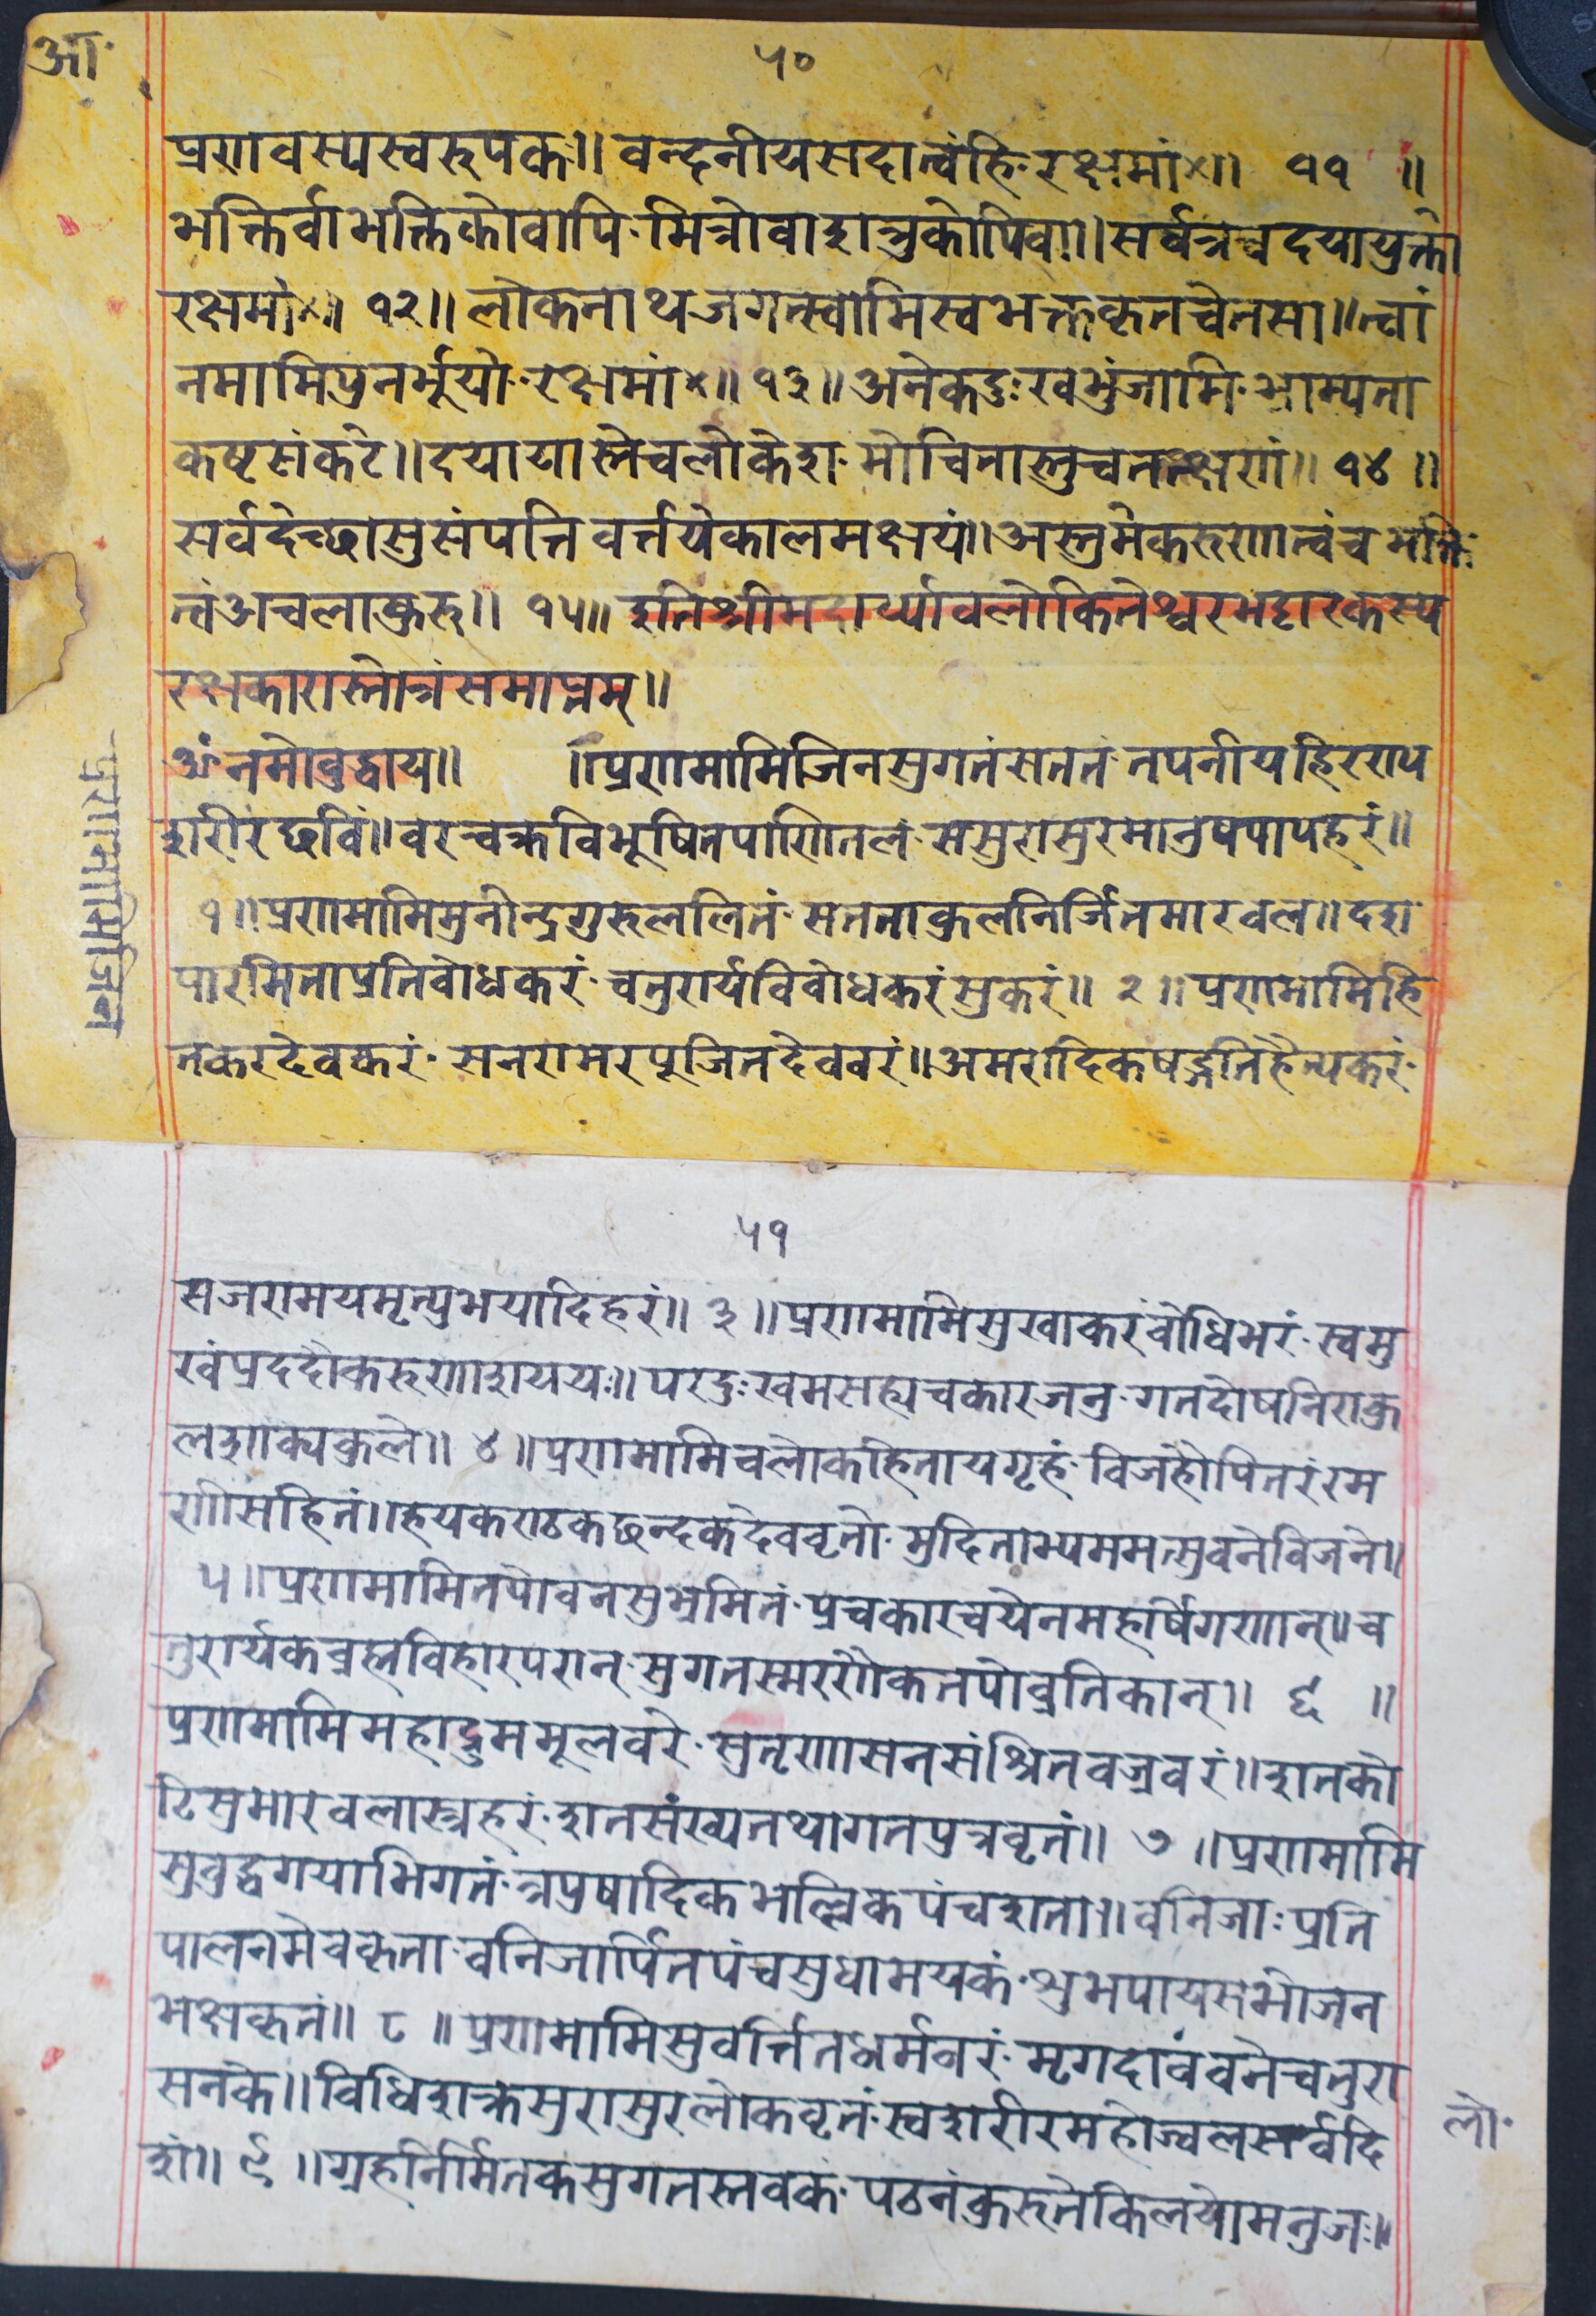 आ.
५०
प्रणवस्यस्वरुपकः॥ वन्दनीयसदात्वंहि॰रक्षमां×॥ ११ ॥
भक्तिर्वाभक्तिकोवापि॰मित्रोवाशत्रुकोपिवा॥सर्वत्रत्वदयायुक्तो
रक्षमां×॥ १२॥ लोकनाथजगत्स्वामिस्वभक्तकृतचेतसा॥त्वां
नमामिपुनर्भूयो॰रक्षमां×॥ १३॥ अनेकदुःखभुंजामि॰भ्राम्यता
कष्टसंकटे॥दयायास्तेचलोकेश॰मोचितास्तुचतत्क्षणं॥ १४ ॥
सर्वदेच्छासुसंपत्तिवर्त्तयेकालमक्षयं॥अस्तुमेकरुणात्वंच भक्ति॰
त्वंअचलाकुरु॥ १५॥ इतिश्रीमदार्य्यावलोकितेश्वरभट्टारकस्य
रक्षकारास्तोत्रंसमाप्तम्॥
ॐनमोबुद्धाय॥ ॥प्रणमामिजिनसुगतंसततं॰तपनीयहिरण्य
शरीरंछविं॥वरचक्रविभूषितपाणितलं॰ससुरासुरमानुषपापहरं॥
१॥प्रणमामिमुनीन्द्रगुरुललितं॰सतताकुलनिर्जितमारवल॥दश
पारमिताप्रतिवोधकरं॰चतुरार्यविवोधकरंसुकरं॥ २॥ प्रणमामिहि
तकरदेवकरं॰ सनरामरपूजितदेववरं॥अमरादिकषड्गतिहैत्यकरं॰
प्रणमामिजिन
५१
सजरामयमृत्युभयादिहरं॥ ३॥प्रणमामिसुखाकरंवोधिभरं॰स्वमु
खंप्रददौकरुणाशययः॥ परदुःखमसह्यचकारजनु॰गतदोषनिराकु
लशाक्यकुले॥ ४॥प्रणमामिचलोकहितायगृहं॰विजहौपितरंरम
णीसहितं॥हयकण्ठकछन्दकदेववृतो॰मुदिताभ्यममत्सुवनेविजने॥
५॥प्रणमामितपोवनसुभ्रमितं॰प्रचकारचयेनमहर्षिगणान्॥च
तुरार्यकव्रह्मविहारपरान्॰सुगतस्मरणैकतपोव्रतिकान्॥ ६ ॥
प्रणमामिमहाद्रुममूलवरे॰सुतृणासनसंश्रितवज्रवरं॥शतको
टिसुमारवलास्त्रहरं॰शतसंख्यतथागतपुत्रवृतं॥ ७ ॥प्रणमामि
सुबुद्धगयाभिगतं॰त्रपुषादिकभल्लिकपंचशता॥वनिजाःप्रति
पालनमेवकृता॰वनिजार्पितपंचसुधामयकं॰शुभपायसभोजन
भक्षकृतं॥ ८ ॥प्रणमामिसुवर्त्तितधर्मवरं॰मृगदावंवनेचतुरा
सनके॥विधिशक्रसुरासुरलोकवृतं॰स्वशरीरमहोज्वलसर्वदि
शं॥ ९ ॥ग्रहनिर्मितकंसुगतस्तवकं॰पठनंकुरुतेकिलयोमनुजः॥
लो.